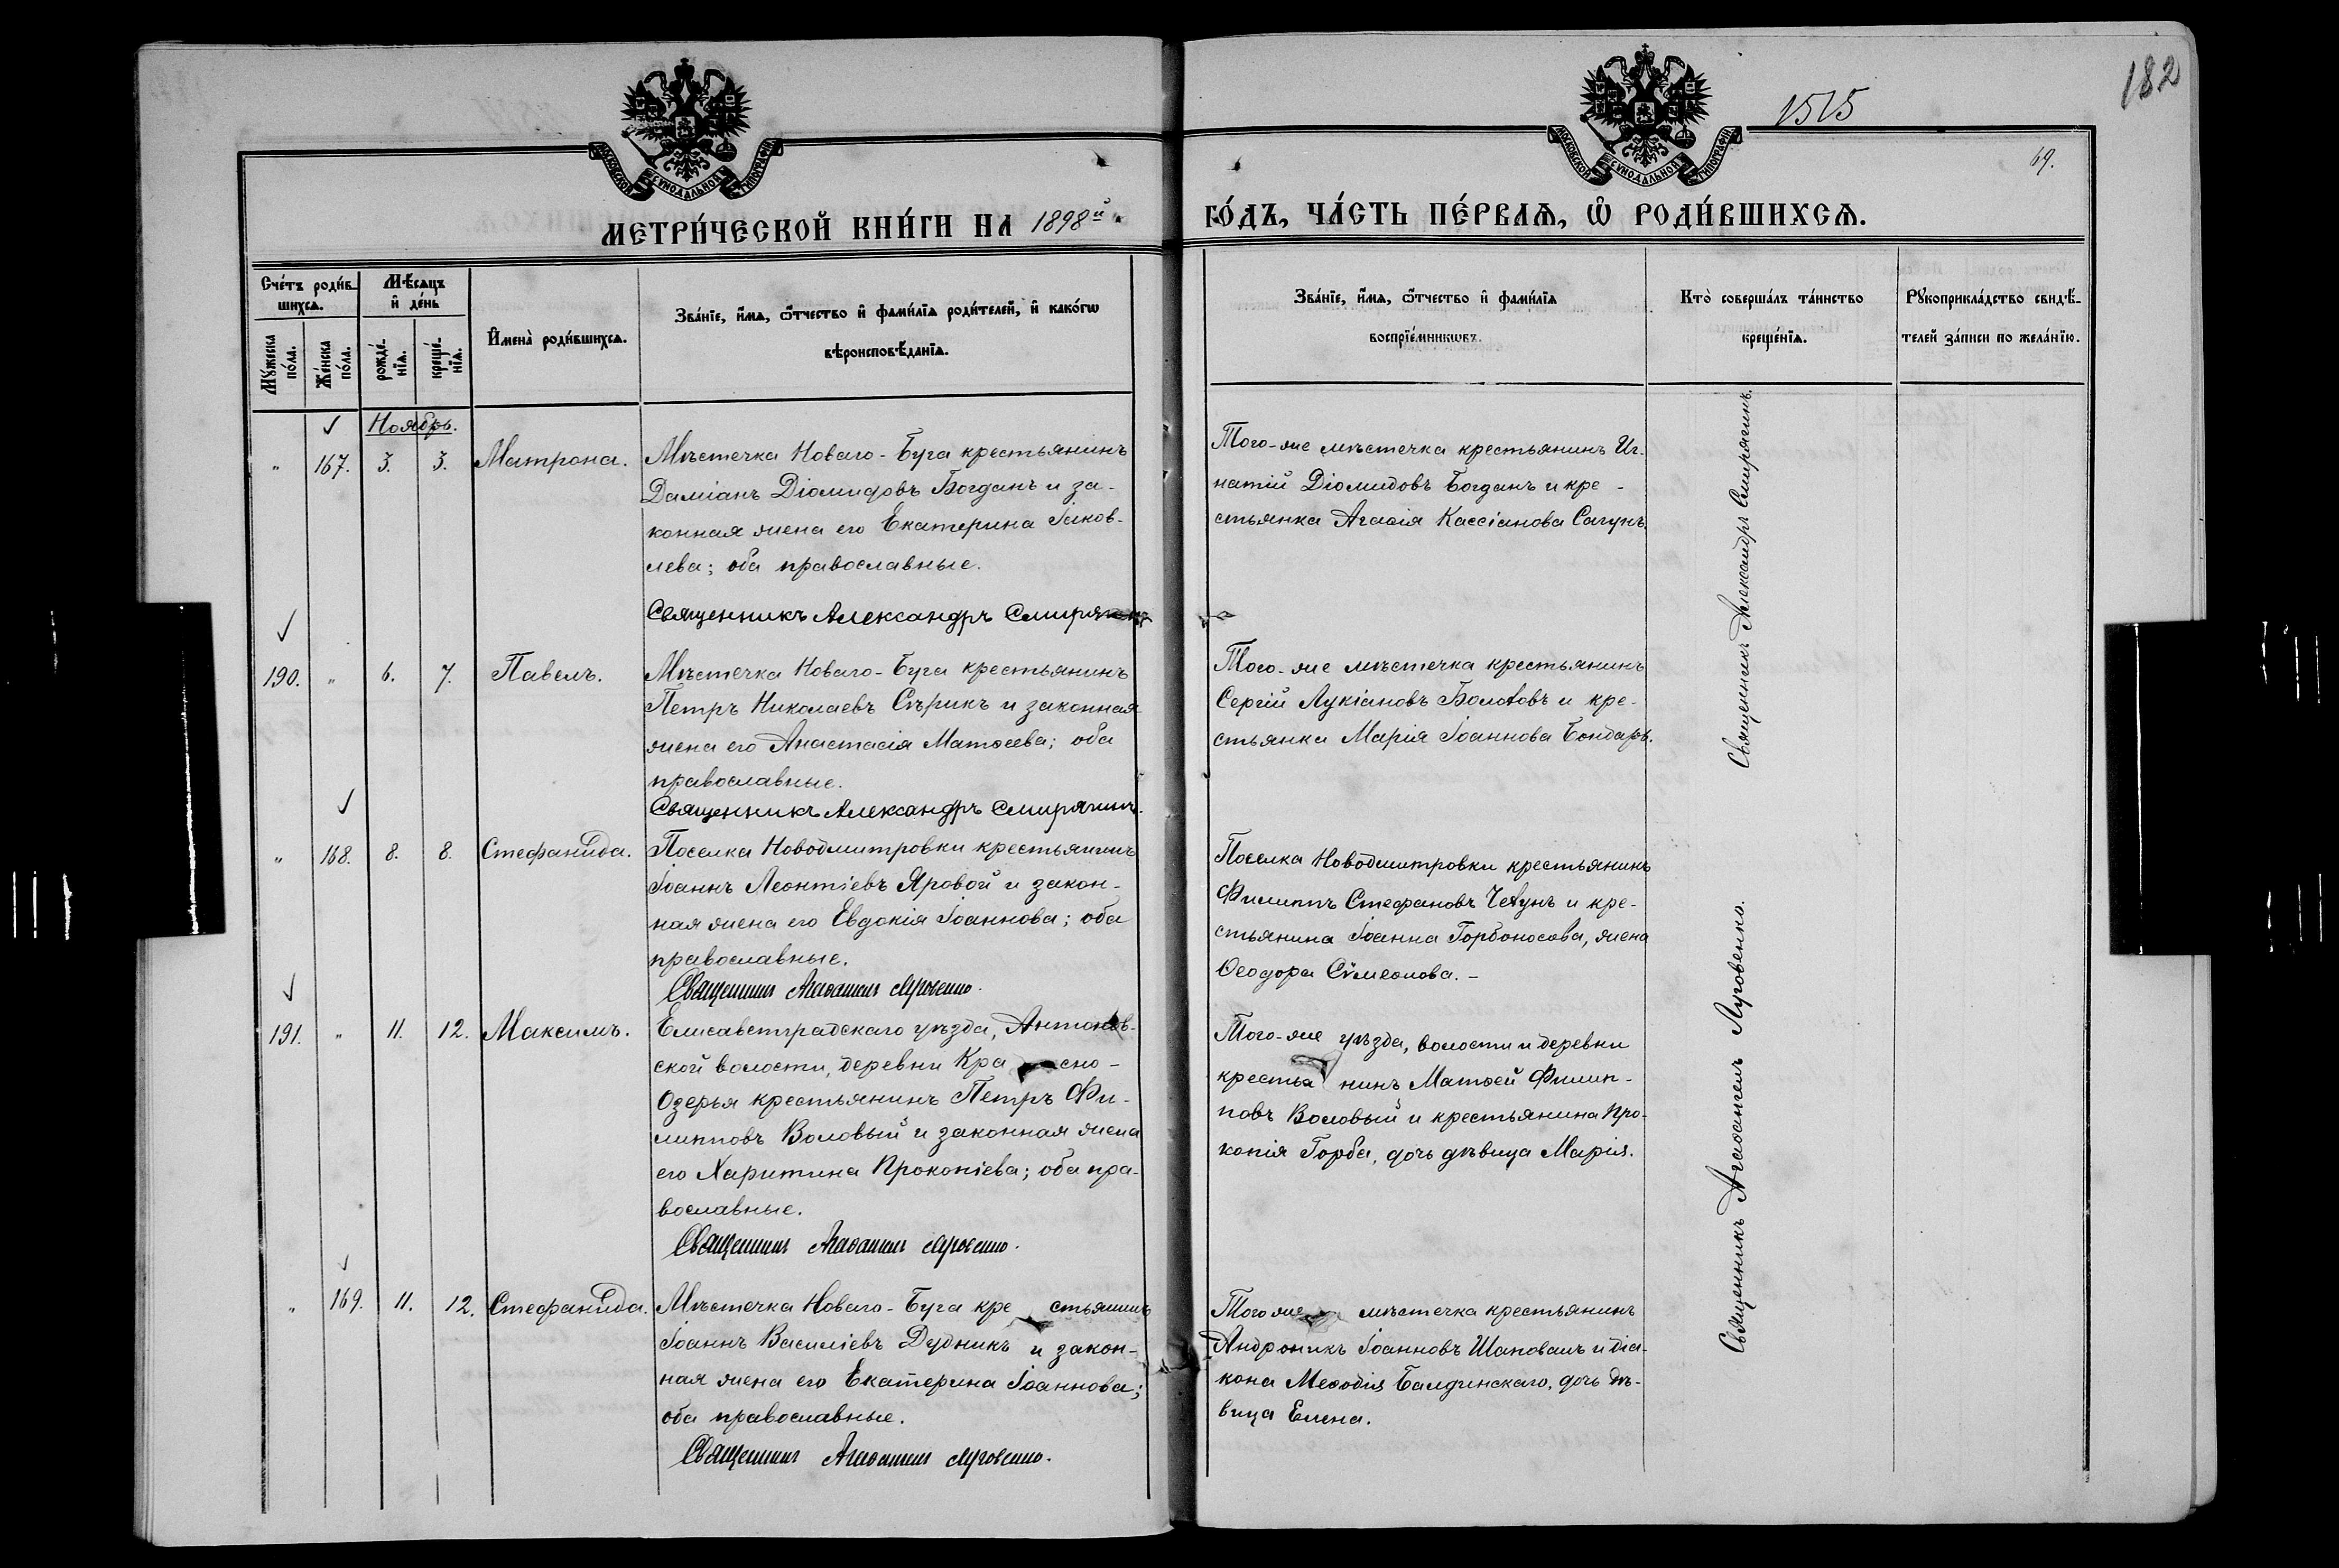 182
1515
69.
МОСКОВСКОЙ СУНОДАЛЬНОЙ ТИПОГРАФІИ
МОСКОВСКОЙ СУНОДАЛЬНОЙ ТИПОГРАФІИ
МЕТРИ́ЧЕСКОЙ КНИ́ГИ НА 1898й
ГО́ДЪ, ЧА́СТЬ ПЕ́РВАѦ, Ѡ҆ РОДИ́ВШИХСѦ.
Сче́тъ роди́в-
шихсѧ.
Мѣ́сѧцъ
и҆ де́нь
Мꙋ́жеска
по́ла.
Же́нска
по́ла.
рожде́-
нїѧ.
креще́-
нїѧ.
И҆мена̀ роди́вшихсѧ.
Зва́нїе, и҆́мѧ, ѻ҆́тчество и҆ фами́лїѧ роди́телей, и҆ како́гѡ
вѣроисповѣ́данїѧ.
Зва́нїе, и҆́мѧ, ѻ҆́тчество и҆ фами́лїѧ
воспрїе́мникѡвъ.
Кто̀ соверша́лъ та́инство
креще́нїѧ.
Рꙋкоприкла́дство свидѣ́-
телей за́писи по жела́нїю.
Ноябрь.
" 167. 3. 3. Матрона.
Мѣстечка Новаго-Буга крестьянинъ
Даміанъ Діомидовъ Богданъ и за-
конная жена его Екатерина Іаков-
лева; оба православные.
Священникъ Александръ Смирягинъ
Того-же мѣстечка крестьянинъ Иг-
натій Діомидовъ Богданъ и кре-
стьянка Агаѳія Кассіанова Сагунъ.
190. " 6. 7. Павелъ.
Мѣстечка Новаго-Буга крестьянинъ
Петръ Николаевъ Сѣрикъ и законная
жена его Анастасія Матѳеева; оба
православные.
Священникъ Александръ Смирягинъ.
Того-же мѣстечка крестьянинъ
Сергій Лукіановъ Болотовъ и кре-
стьянка Марія Іоаннова Бондарь.
Священникъ Александръ Смирягинъ.
" 168. 8. 8. Стефанида.
Поселка Новодмитровки крестьянинъ
Іоаннъ Леонтіевъ Яровой и закон-
ная жена его Евдокія Іоаннова; оба
православные.
Священникъ Агаѳангелъ Луговенко.
Поселка Новодмитровки крестьянинъ
Филиппъ Стефановъ и кре-
стьянина Іоанна Горбоносова, жена
Ѳеодора Сѵмеонова.-
191. " 11. 12. Максимъ.
Елисаветградскаго уѣзда, Антонов-
ской волости, деревни Красно-
Озерья крестьянинъ Петръ Фи-
липповъ Воловый и законная жена
его Харитина Прокопіева; оба пра-
вославные.
Священникъ Агаѳангелъ Луговенко.
Того-же уѣзда, волости и деревни
крестьянинъ Матѳей Филип-
повъ Воловый и крестьянина Про-
копія Горба, дочь дѣвица Марія.
" 169. 11. 12. Стефанида.
Мѣстечка Новаго-Буга крестьянинъ
Іоаннъ Василіевъ Дудникъ и закон-
ная жена его Екатерина Іоаннова;
оба православные.
Священникъ Агаѳангелъ Луговенко.
Того же мѣстечка крестьянинъ
Андроникъ Іоанновъ Шаповалъ и діа-
кона Меѳодія Балдинскаго, дочь дѣ-
вица Елена.
Священникъ Агаѳангелъ Луговенко.